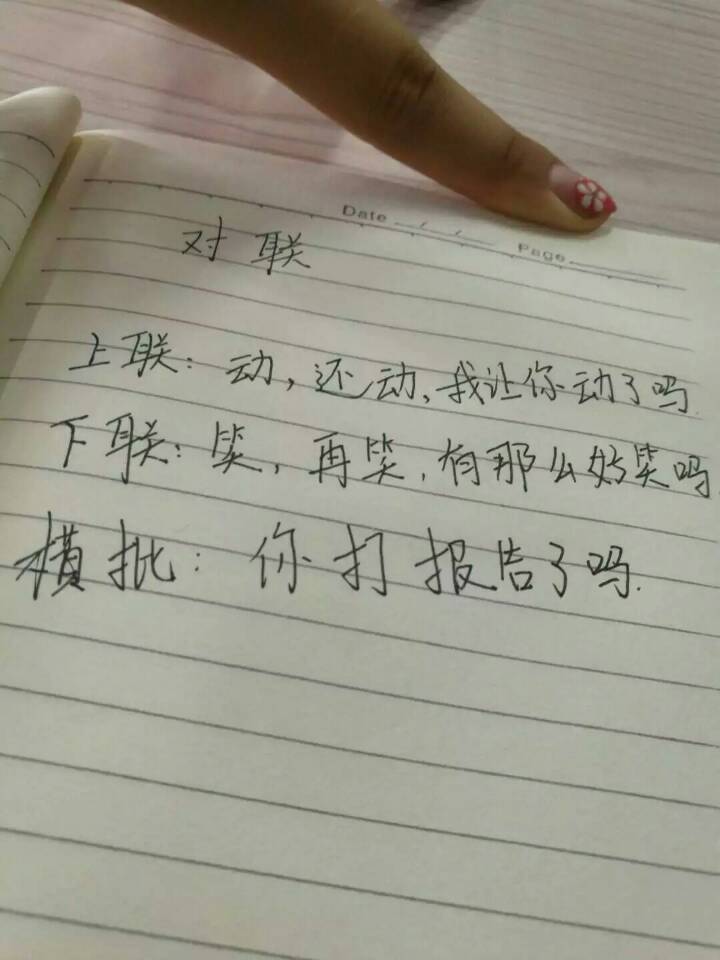 Date / /
Page
对联
上联：动，还动，我让你动了吗
下联：笑，再笑，有那么好笑吗
横批：你打报告了吗.